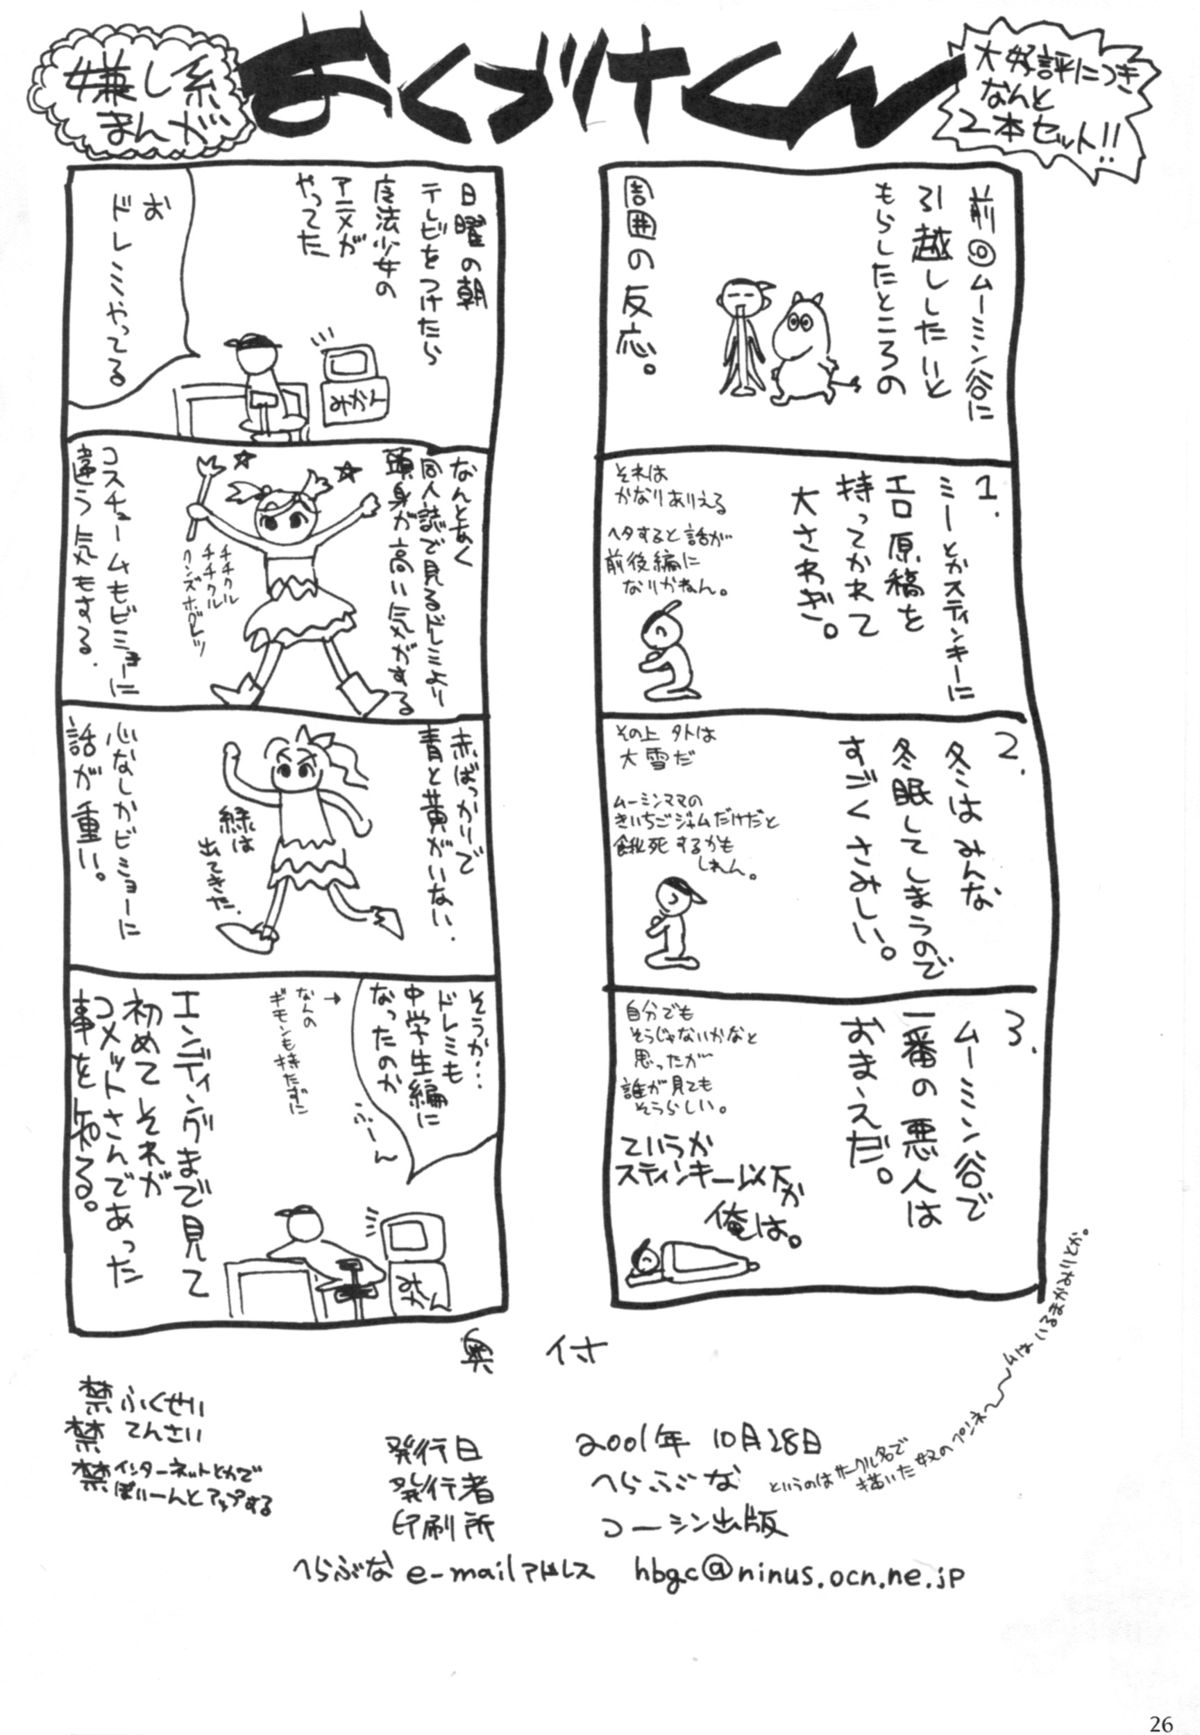 嫌し系
まんが
おくづけくん
大好評につき
なんと
2本セット!!
前回ムーミン谷に
引越ししたいと
もらしたところの
周囲の反応。
1.
ミーとかスティンキーに
エロ原稿を
持ってかれて
大さわぎ。
それは
かなりありえる
ヘタすると話が
前後編に
なりかねん。
2.
冬はみんな
冬眠してしまうので
すごくさみしい。
その上外は
大雪だ
ムーミンママの
きいちごジャムだけだと
餓死するかも
しれん。
3.
ムーミン谷で
一番の悪人は
おまえだ。
自分でも
そうじゃないかなと
思ったが
誰が見ても
そうらしい。
ていうか
スティンキー以下か
俺は。
日曜の朝
テレビをつけたら
魔法少女の
アニメが
やってた
お
ドレミやってる
みかん
なんとなく
同人誌で見るドレミより
頭身が高い気がする
チチクル
チチクル
クンズホグレツ
コスチュームもビミョーに
違う気もする.
赤ばっかりで
青と黄がいない.
緑は
出てきた.
心なしかビミョーに
話が重い。
そうか…
ドレミも
中学生編に
なったのか
ふーん
→
なんの
ギモンも持たずに
エンディングまで見て
初めてそれが
コメットさんであった
事を知る。
みかん
奥付
禁ふくせい
禁てんさい
禁インターネットとかで
ぽいーんとアップする
発行日 2001年 10月28日
発行者 へらぶな
というのはサークル名で
描いた奴のペンネームはいるまかみりとか。
印刷所 コーシン出版
へらぶな e-mailアドレス hbgc@ninus.ocn.ne.jp
26